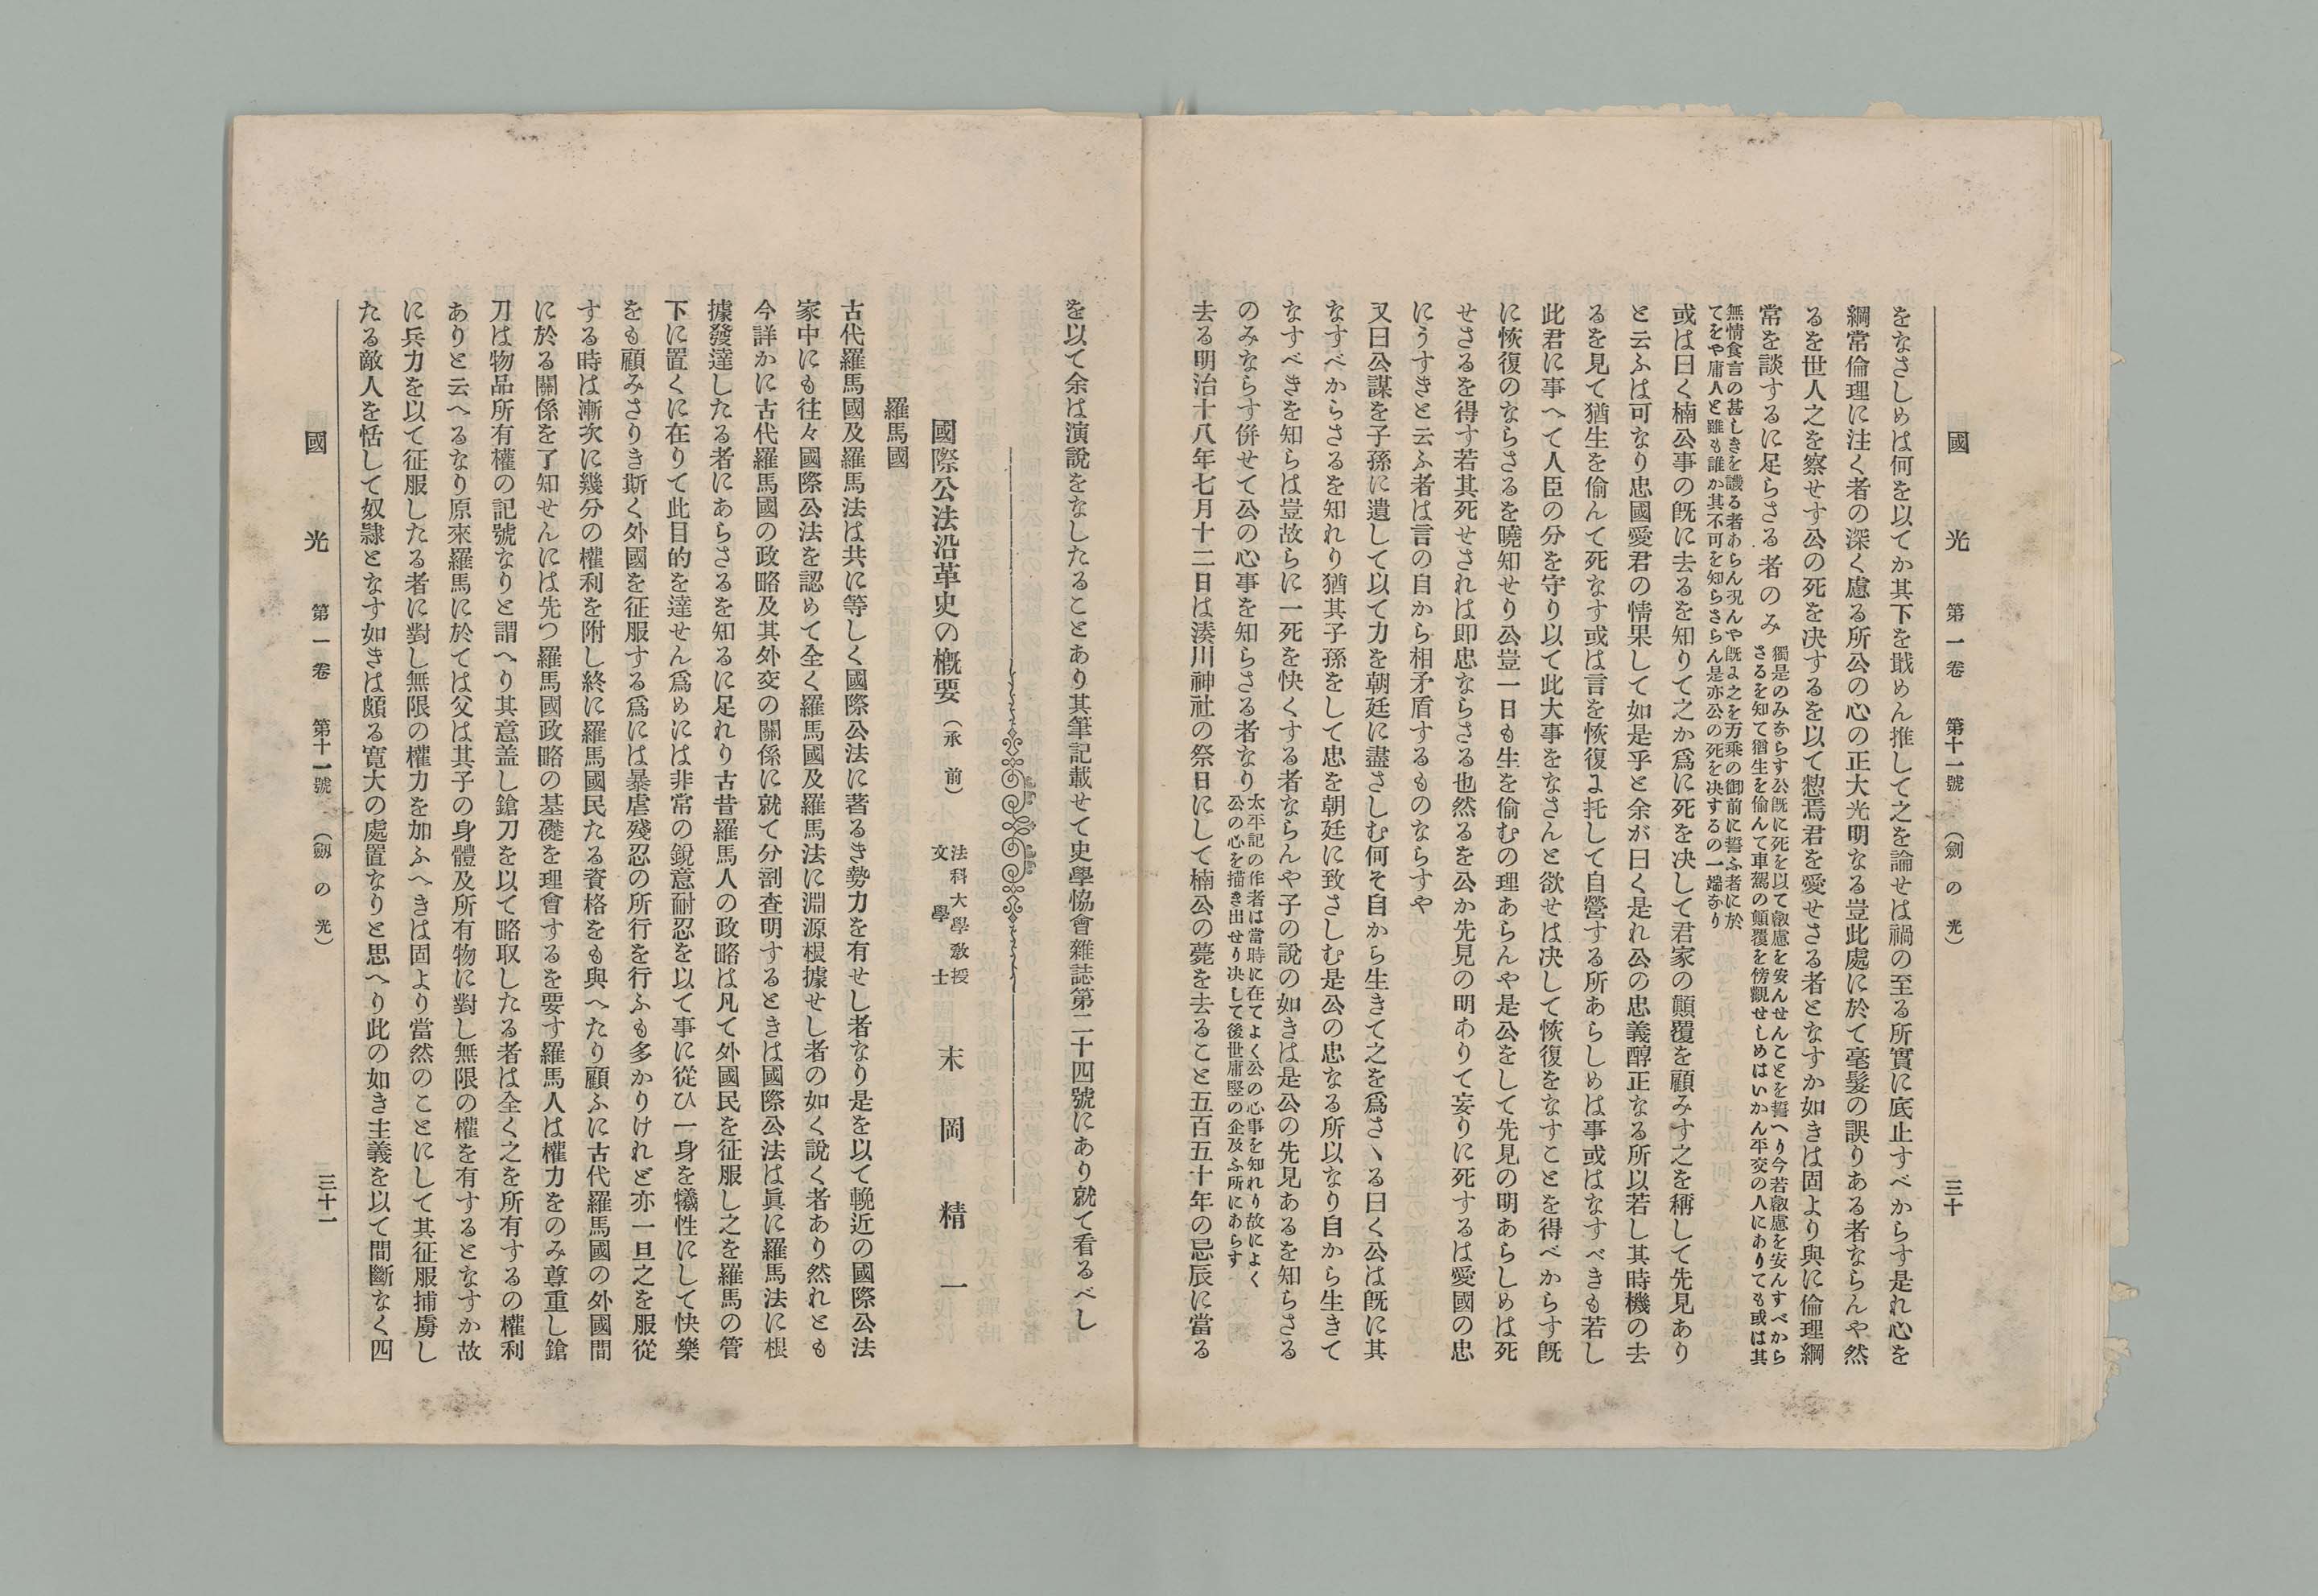 國光 第一卷 第十一號 (劍の光) 三十
をなさしめは何を以てか其下を戢めん推して之を論せは禍の至る所實に底止すべからす是れ心を
綱常倫理に注く者の深く慮る所公の心の正大光明なる豈此處に於て毫髮の誤りある者ならんや然
るを世人之を察せす公の死を決するを以て愸焉君を愛せさる者となすか如きは固より與に倫理綱
常を談するに足らさる者のみ
獨是のみならす公既に死を以て叡慮を安んせんことを誓へり今若叡慮を安んすべから
さるを知て猶生を偷んて車駕の顛覆を傍觀せしめはいかん平交の人にありても或は其
無情食言の甚しきを譏る者あらん况んや既に之を万乘の御前に誓ふ者に於
てをや庸人と雖も誰か其不可を知らさらん是亦公の死を決するの一端なり
或は曰く楠公事の既に去るを知りて之か爲に死を決して君家の顛覆を顧みす之を稱して先見あり
と云ふは可なり忠國愛君の情果して如是乎と余が曰く是れ公の忠義醇正なる所以若し其時機の去
るを見て猶生を偷んて死なす或は言を恢復に托して自營する所あらしめは事或はなすべきも若し
此君に事へて人臣の分を守り以て此大事をなさんと欲せは決して恢復をなすことを得べからす既
に恢復のならさるを曉知せり公豈一日も生を偷むの理あらんや是公をして先見の明あらしめは死
せさるを得す若其死せされは即忠ならさる也然るを公か先見の明わりて妄りに死するは愛國の忠
にうすきと云ふ者は言の自から相矛盾するものならすや
又曰公謀を子孫に遺して以て力を朝廷に盡さしむ何そ自から生きて之を爲さゝる曰く公は既に其
なすべからさるを知れり猶其子孫をして忠を朝廷に致さしむ是公の忠なる所以なり自から生きて
なすべきを知らは豈故らに一死を快くする者ならんや子の說の如きは是公の先見あるを知らさる
のみならす併せて公の心事を知らさる者なり
太平記の作者は當時に在てよく公の心事を知れり故によく
公の心を描き出せり决して後世庸竪の企及ふ所にあらす
去る明治十八年七月十二日は湊川神社の祭日にして楠公の薨を去ること五百五十年の忌辰に當る
を以て余は演說をなしたることあり其筆記載せて史學協會雜誌第二十四號にあり就て看るべし
國際公法沿革史の槪要(承前)
法科大學教授
文學士
末岡精一
羅馬國
古代羅馬國及羅馬法は共に等しく國際公法に著るき勢力を有せし者なり是を以て輓近の國際公法
家中にも往々國際公法を認めて全く羅馬國及羅馬法に淵源根據せし者の如く說く者あり然れとも
今詳かに古代羅馬國の政略及其外交の關係に就て分割査明するときは國際公法は眞に羅馬法に根
據發達したる者にあらさるを知るに足れり古昔羅馬人の政略は凡て外國民を征服し之を羅馬の管
下に置くに在りて此目的を達せん爲めには非常の銳意耐忍を以て事に從ひ一身を犧性にして快樂
をも顧みさりき斯く外國を征服する爲には暴虐殘忍の所行を行ふも多かりけれど亦一旦之を服從
する時は漸次に幾分の權利を附し終に羅馬國民たる資格をも與へたり顧ふに古代羅馬國の外國間
に於る關係を了知せんには先つ羅馬國政略の基礎を理會するを要す羅馬人は權力をのみ尊重し鎗
刀は物品所有權の記號なりと謂へり其意盖し鎗刀を以て略取したる者は全く之を所有するの權利
ありと云へるなり原來羅馬に於ては父は其子の身體及所有物に對し無限の權を有するとなすか故
に兵力を以て征服したる者に對し無限の權力を加ふへきは固より當然のことにして其征服捕虜し
たる敵人を恬して奴隷となす如きは頗る寬大の處置なりと思へり此の如き主義を以て間斷なく四
國光 第一卷 第十一號 (劍の光) 三十一